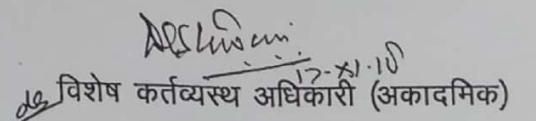 17-XI-15
विशेष कर्तव्यस्थ अधिकारी (अकादमिक)